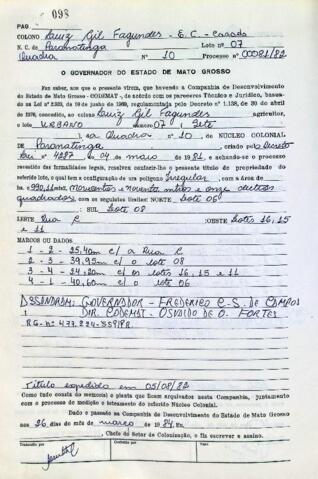 098
PAG
COLONO Luiz Gil Fagundes - E.C. - Casado
N. C. de Paranatinga Lote nº 07
Quadra Nº 10 Processo nº 00081/82
O GOVERNADOR DO ESTADO DE MATO GROSSO
Faz saber, aos que a presente virem, que havendo a Companhia de Desenvolvimento
do Estado de Mato Grosso - CODEMAT -, de acordo com os pareceres Técnico e Jurídico, basea-
dos na Lei nº 2.933, de 19 de junho de 1969, regulamentada pelo Decreto nº 1.138, de 30 de abril
de 1970, concedido, ao colono Luiz Gil Fagundes agricultor,
o lote URBANO número 07 Sete
Quadra nº 10, DE NÚCLEO COLONIAL
DE Paranatinga criado pelo Decreto
Lei nº 4287 de 04 de maio de 1981, e achando-se o processo
revestido das formalidades legais, resolveu conferir-lhe o presente título de propriedade do
referido lote, o qual tem a configuração de um polígono Irregular, com a área de
990,11 m2, novecentos e noventa metros e onze decímetros
quadrados, com os seguintes limites: NORTE Lote 06
SUL Lote 08
LESTE Rua R OESTE Lotes 16, 15
e 11
MARCOS OU DADOS
1 - 2 - 25,40m c/ a Rua R
2 - 3 - 39,95m c/ o lote 08
3 - 4 - 24,20m c/ os lotes 16, 15 e 11
4 - 1 - 40,60m c/ o lote 06
GOVERNADOR - FREDERICO C. S. DE CAMPOS
DIR. CODEMAT - OSVALDO DE O. FORTES
RG - nº 477.224-SSP/PR
Título expedido em 05/08/82
Tudo como consta do memorial e planta que ficam arquivados nesta Companhia, juntamente
com o processo de medição e loteamento do referido Núcleo Colonial.
Dado e passado na Companhia de Desenvolvimento do Estado de Mato Grosso
aos 26 dias do mês de março de 1984. Eu,
Chefe do Setor de Colonização, o fiz escrever e assino.